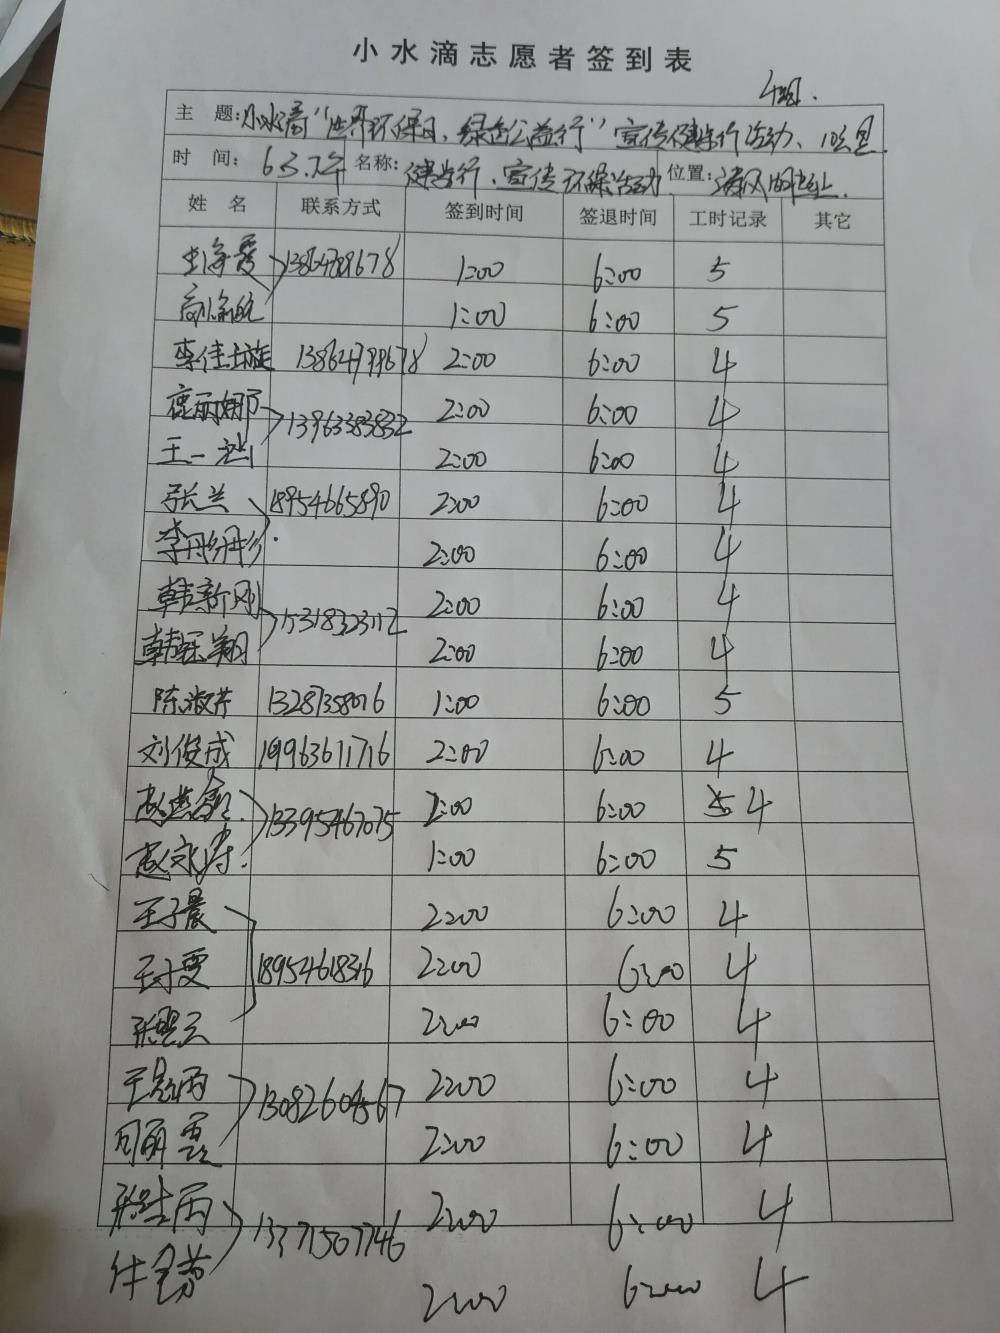 小水滴志愿者签到表
4组.
主 题:小水滴"世界环保日，绿色公益行"宣传健步行活动、10公里
时 间: 6.3.下午 名称: 健步行、宣传环保活动 位置:
姓 名 联系方式 签到时间 签退时间 工时记录 其它
13864789678 1:00 6:00 5
1:00 6:00 5
李佳 13864799678 2:00 6:00 4
鹿丽娜 13963383832 2:00 6:00 4
王一 2:00 6:00 4
张兰 18954665890 2:00 6:00 4
李丹彤 2:00 6:00 4
韩新刚 15318323112 2:00 6:00 4
韩钰翔 2:00 6:00 4
陈淑芹 13287358076 1:00 6:00 5
刘俊成 19963611716 2:00 6:00 4
赵 13395467075 2:00 6:00 4
赵 1:00 6:00 5
王子晨 2:00 6:00 4
18954618316 2:00 6:00 4
2:00 6:00 4
13082604567 2:00 6:00 4
2:00 6:00 4
13371507746 2:00 6:00 4
2:00 6:00 4